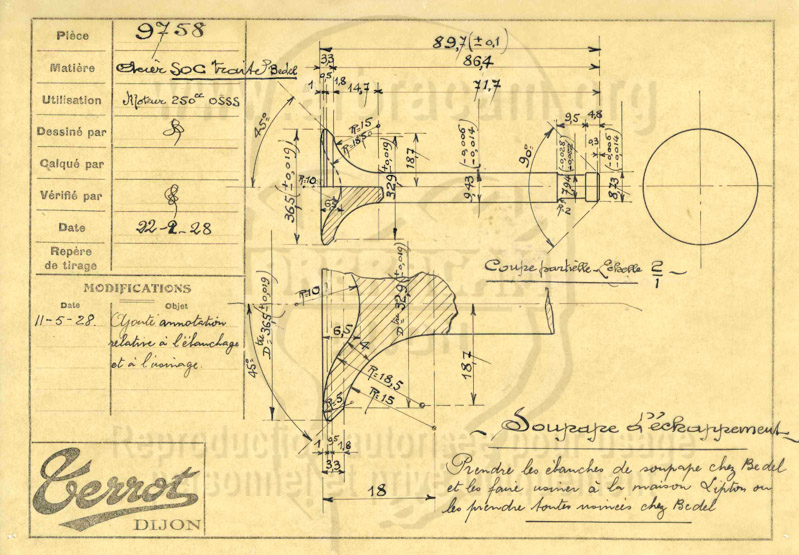 Pièce
9758
Matière
Acier SOC traité Bedel
Utilisation
Moteur 250cc OSSS
Dessiné par
Calqué par
Vérifié par
Date
22-2-28
Repère
de tirage
MODIFICATIONS
Date
Objet
11-5-28.
Ajouté annotation
relative à l'étanchage
et à l'usinage.
Terrot
DIJON
89,7 (± 0,1)
86,4
71,7
33
0,5
1
1,8
14,7
45°
R=15
R=18,5
18,7
R=10
6,5
36,5 (± 0,019)
32,9 (± 0,019)
9,43 (-0,006 -0,014)
90°
9,5
4,8
0,3
7,94
R=2
8,73
-0,006
-0,014
Coupe partielle - Echelle 2/1
R=10
D=36,5 (± 0,019)
32,9 (± 0,019)
6,5
4
45°
R=18,5
R=15
R=5
18,7
1
0,5
1,8
33
18
Soupape d'échappement
Prendre les étanches de soupape chez Bedel
et les faire usiner à la maison Lipton ou
les prendre toutes usinées chez Bedel